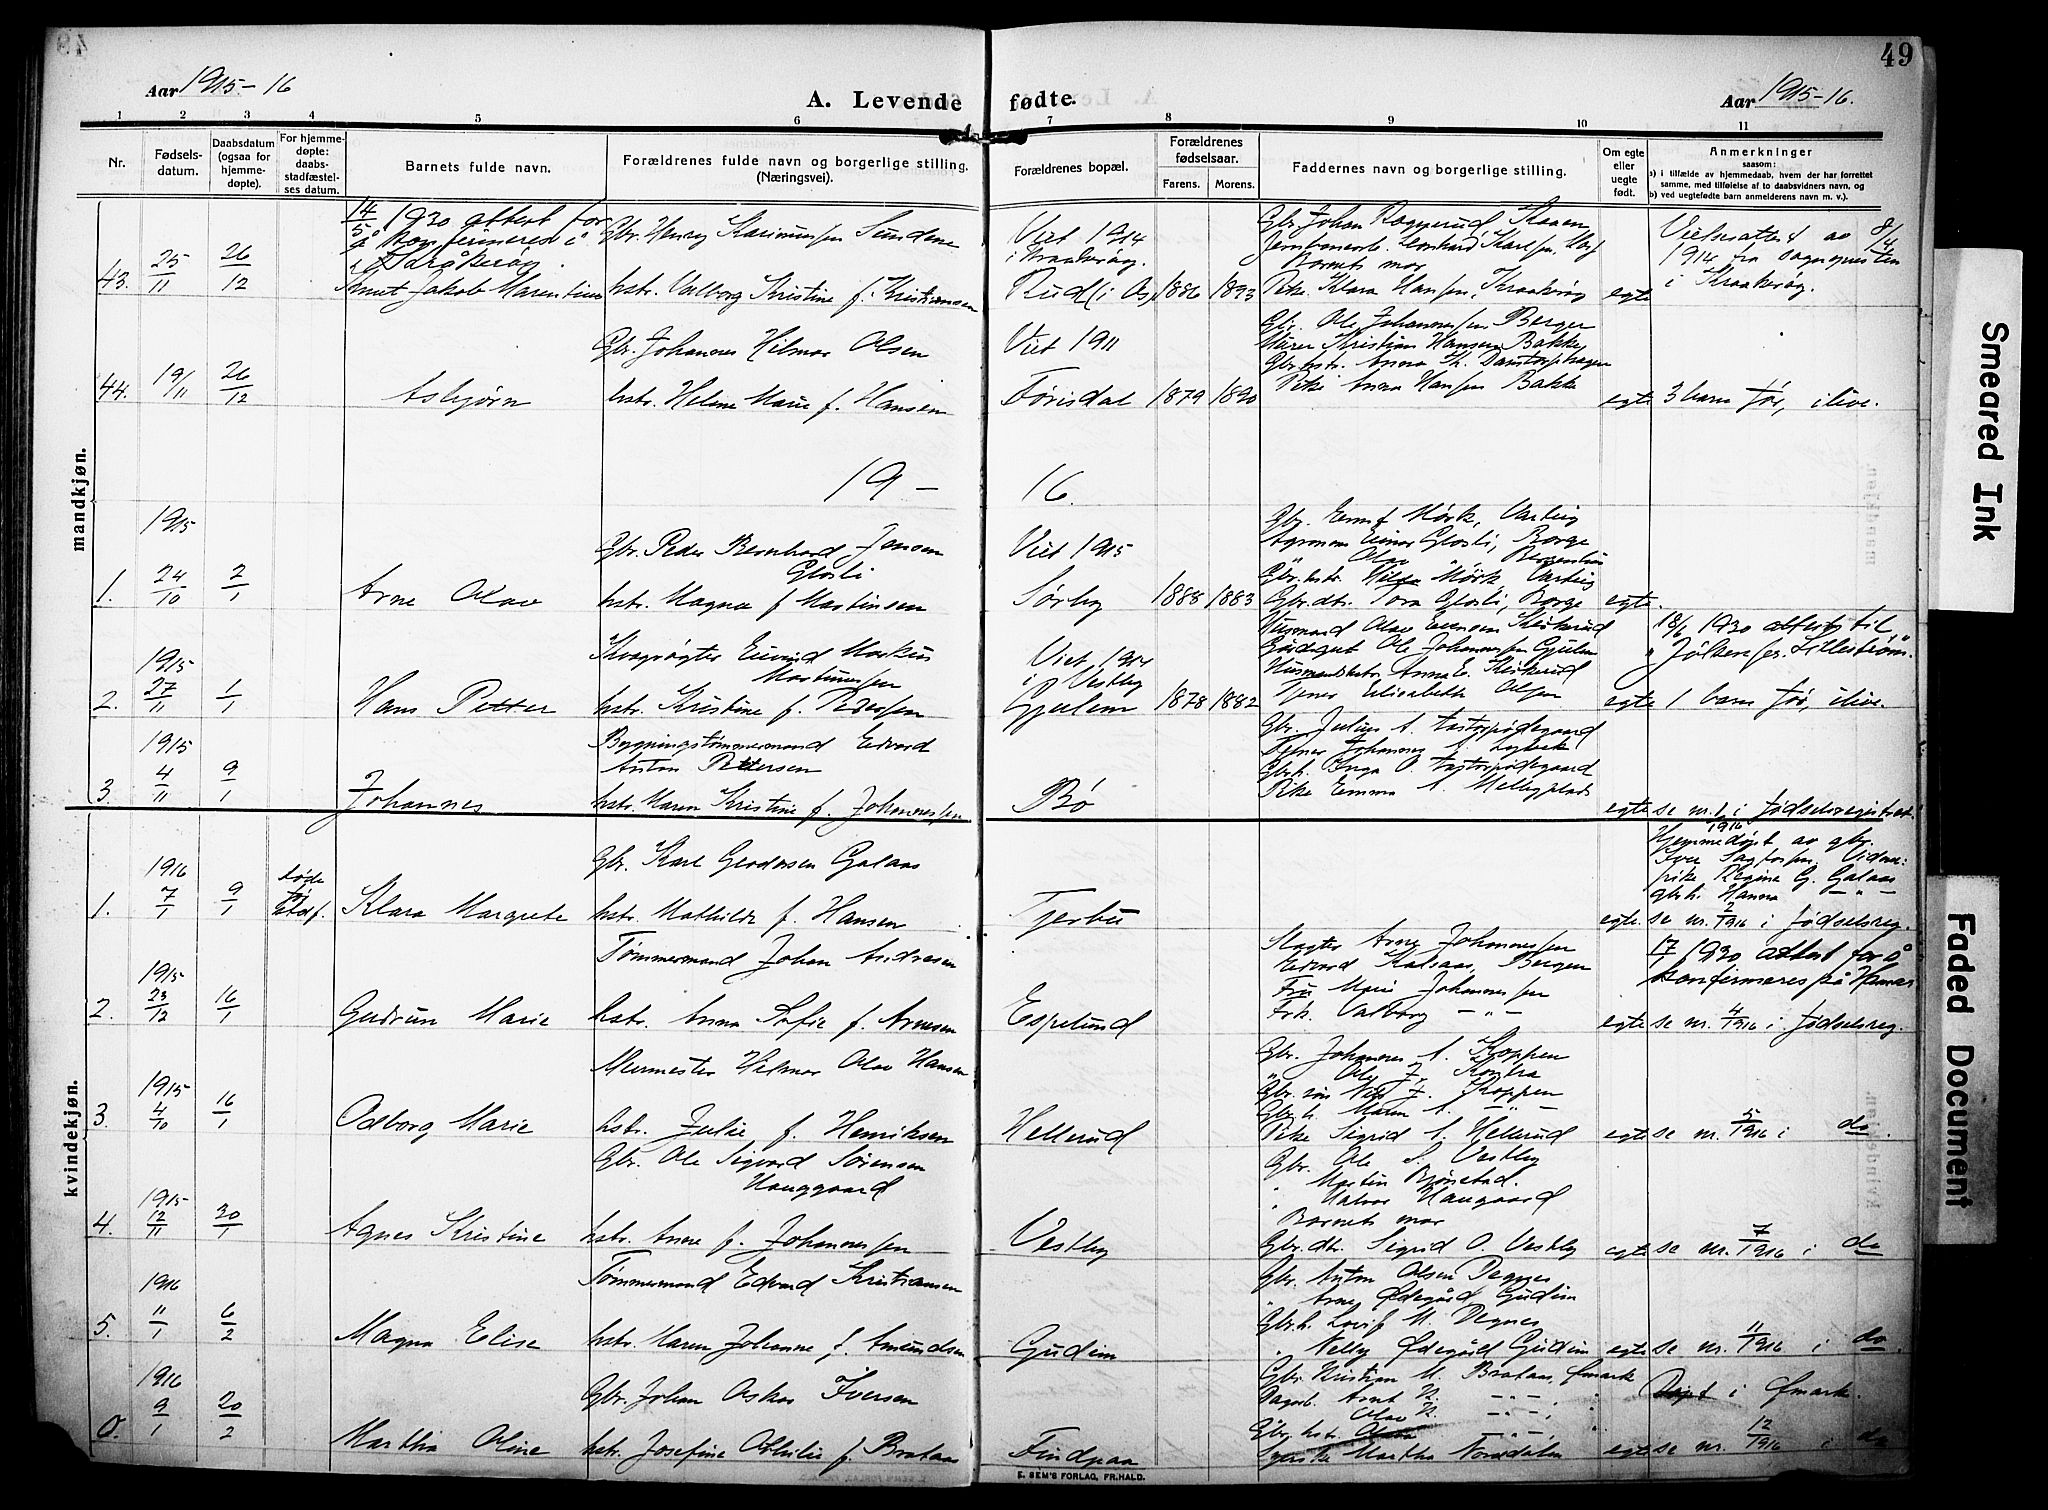 49
Aar 1915-16
A. Levende fødte.
Aar 1915-16.
1 2 3 4 5 6 7 8 9 10 11
Nr.
Fødsels-
datum.
Daabsdatum
(ogsaa for
hjemme-
døpte).
For hjemme-
døpte:
daabs-
stadfæstel-
ses datum.
Barnets fulde navn.
Forældrenes fulde navn og borgerlige stilling.
(Næringsvei).
Forældrenes bopæl.
Forældrenes
fødselsaar.
Farens. Morens.
Faddernes navn og borgerlige stilling.
Om egte
eller
uegte
født.
Anmerkninger
saasom:
a) i tilfælde av hjemmedaab, hvem der har forrettet
samme, med tilføielse af to daabsvidners navn, og
b) ved uegtefødte barn anmelderens navn m. v.).
mandkjøn.
43. 25/11 26/12
14/5 1930 attest for
å konfirmeres i
Knut Jakob Marentius
Gbr. Henry Karinius Sundene
hstr. Valborg Kristine f. Kristiansen
Viet 1914
i Kraakerøy.
Rud (i Os) 1886 1893
Gbr. Johan Roggerud
Barnets mor
Pike Klara Hansen, Kraakerøy
egte
Vielsesattest av 8/4
1914 fra sognepresten
i Kraakerøy.
44. 19/11 26/12
Asbjørn
Gbr. Johannes Hilmar Olsen
hstr. Helene Marie f. Hansen
Viet 1911
Torisdal 1879 1890
Gbr. Ole Johannessen Berger
Murer Kristian Hansen Bakke
Gbr.hstr. Anna Th. Damtorphagen
Pike Anna Hansen Bakke
egte 3 barn før, ilive.
19 - 16.
1. 1915 24/10 2/1
Arne Olav
Gbr. Peder Bernhard Jensen
Glosli
hstr. Magna f. Martinsen
Viet 1915
Sørby 1888 1883
Gbr. Ernst Mørk, Varteig
Agronom Einar Glosli, Borge
Gbr.hstr. Hilda Mørk Varteig
Gbr.dtr. Tora Glosli, Borge
egte.
2. 1915 27/11 1/1
Hans Petter
Kvægrøgter Eivind Markus
Martinussen
hstr. Kristine f. Pedersen
Viet 1914
i Vestby
Gjulem 1878 1882
Gårdsgut Ole Johannessen Gjulem
Tjener Elisabeth Olsen
egte 1 barn før, ilive.
18/6 1930 attest til
3. 1915 4/11 9/1
Johannes
Bygningstømmermand Edvard
Anton Pettersen
hstr. Maren Kristine f. Johannessen
Bø
Gbr. Julius A. Tastorpødegaard
Tjener Johannes A. Lybeck
Gbrh. Inga O. Tastorpødegaard
Pike Emma A. Mellegplads
egte se nr. 1/1916 i fødselsregistret.
kvindekjøn.
1. 1916 7/1 9/1
døde
før
stadf.
Klara Margrete
Gbr. Karl Gundersen Galaas
hstr. Mathilde f. Hansen
Tjerbu
egte
Hjemmedøpt av gbr.
pike Regina G. Galaas
gbrh. Hanna - " -
se nr. 2/1916 i fødselsreg.
2. 1915 23/12 16/1
Gudrun Marie
Tømmermand Johan Andresen
hstr. Anna Sofie f. Arnesen
Espelund
Slagter Arne Johannessen
Edvard Kalsaas, Bergen
Fru Marie Johannessen
Frk. Valborg - " -
17/7 1930 attest for å
konfirmeres på Hamar
egte se nr. 4/1916 i fødselsreg.
3. 1915 4/10 16/1
Odborg Marie
Murmester Helmar Olav Hansen
hstr. Julie f. Henriksen
Hellerud
Gbr. Johannes A. Koppen
" Ole J. Kontra
Gbr.søn Nils J. Koppen
Gbrh. Maren A. - " -
Pike Sigrid A. Hellerud
egte se nr. 5/1916 i do.
4. 1915 12/11 30/1
Agnes Kristine
Gbr. Ole Sigvard Sørensen
Hauggaard
hstr. Anne f. Johannessen
Vestby
Gbr. Ole S. Vestby
" Martin Bjønstad.
" Halvor Haugaard
Barnets mor
Gbr.dtr. Sigrid O. Vestby
egte se nr. 7/1916 i do
5. 1916 11/1 6/2
Magna Elise
Tømmermand Edvard Kristiansen
hstr. Maren Johanne f. Amundsen
Gudim
Gbr. Anton Olsen Degnes
" Arne Ødegård Gudim
Gbrh. Lovis M. Degnes
" Nelly Ødegård Gudim
egte se nr. 11/1916 i do.
6. 1916 9/1 20/2
Martha Oline
Gbr. Johan Oskar Iversen
hstr. Josefine Othilie f. Brataas
Findpaa
Gbr. Kristian M. Brataas, Ømark
Dagarb. Arnt K. - " -
Olav K. - " -
Gbr.hstr.
Døpt i Ømark.
egte se nr. 12/1916 i do
E. SEM'S FORLAG, FR.HALD.
Smeared Ink
Faded Document